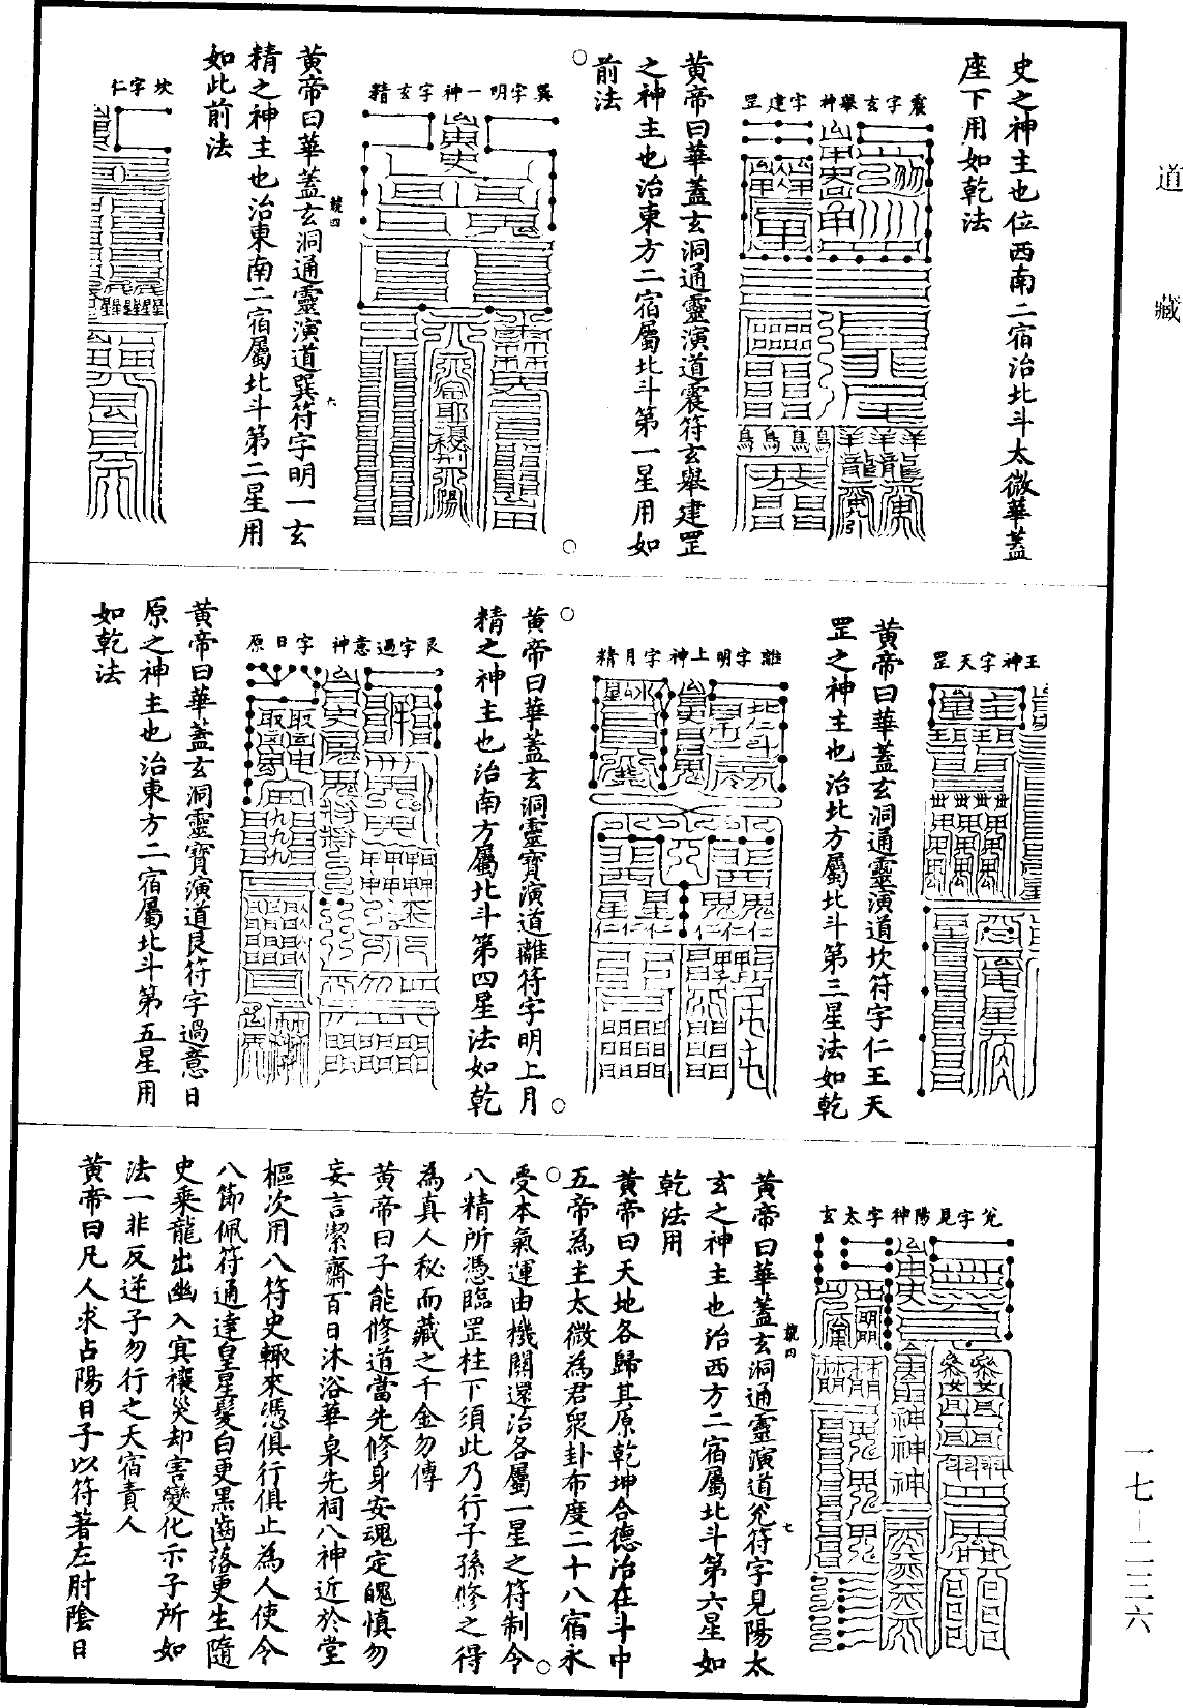 道藏
史之神主也位西南二宿治北斗太微華蓋
座下用如乾法
震字玄舉神字建罡
黃帝曰華蓋玄洞通靈演道震符玄舉建罡
之神主也治東方二宿屬北斗第一星用如
前法
巽字明一神字玄精
黃帝曰華蓋玄洞通靈演道巽符字明一玄
精之神主也治東南二宿屬北斗第二星用
如此前法
坎字仁
王神字天罡
黃帝曰華蓋玄洞通靈演道坎符字仁王天
罡之神主也治北方屬北斗第三星法如乾
離字明上神字月精
黃帝曰華蓋玄洞靈寶演道離符字明上月
精之神主也治南方屬北斗第四星法如乾
艮字過意神字日原
黃帝曰華蓋玄洞靈寶演道艮符字過意日
原之神主也治東方二宿屬北斗第五星用
如乾法
兊字見陽神字太玄
黃帝曰華蓋玄洞通靈演道兊符字見陽太
玄之神主也治西方二宿屬北斗第六星如
乾法用
黃帝曰天地各歸其原乾坤合德治在斗中
五帝為主太微為君衆卦布度二十八宿永
受本氣運由機關還治各屬一星之符制令
八精所憑臨罡柱下須此乃行子孫修之得
為真人秘而藏之千金勿傳
黃帝曰子能修道當先修身安魂定魄慎勿
妄言潔齋百日沐浴華泉先祠八神近於堂
樞次用八符史輙來憑俱行俱止為人使令
八節佩符通達皇星髮白更黑齒落更生隨
史乘龍出幽入冥禳災却害變化示子所如
法一非反逆子勿行之天宿責人
黃帝曰凡人求占陽日子以符著左肘陰日
一七—二三六